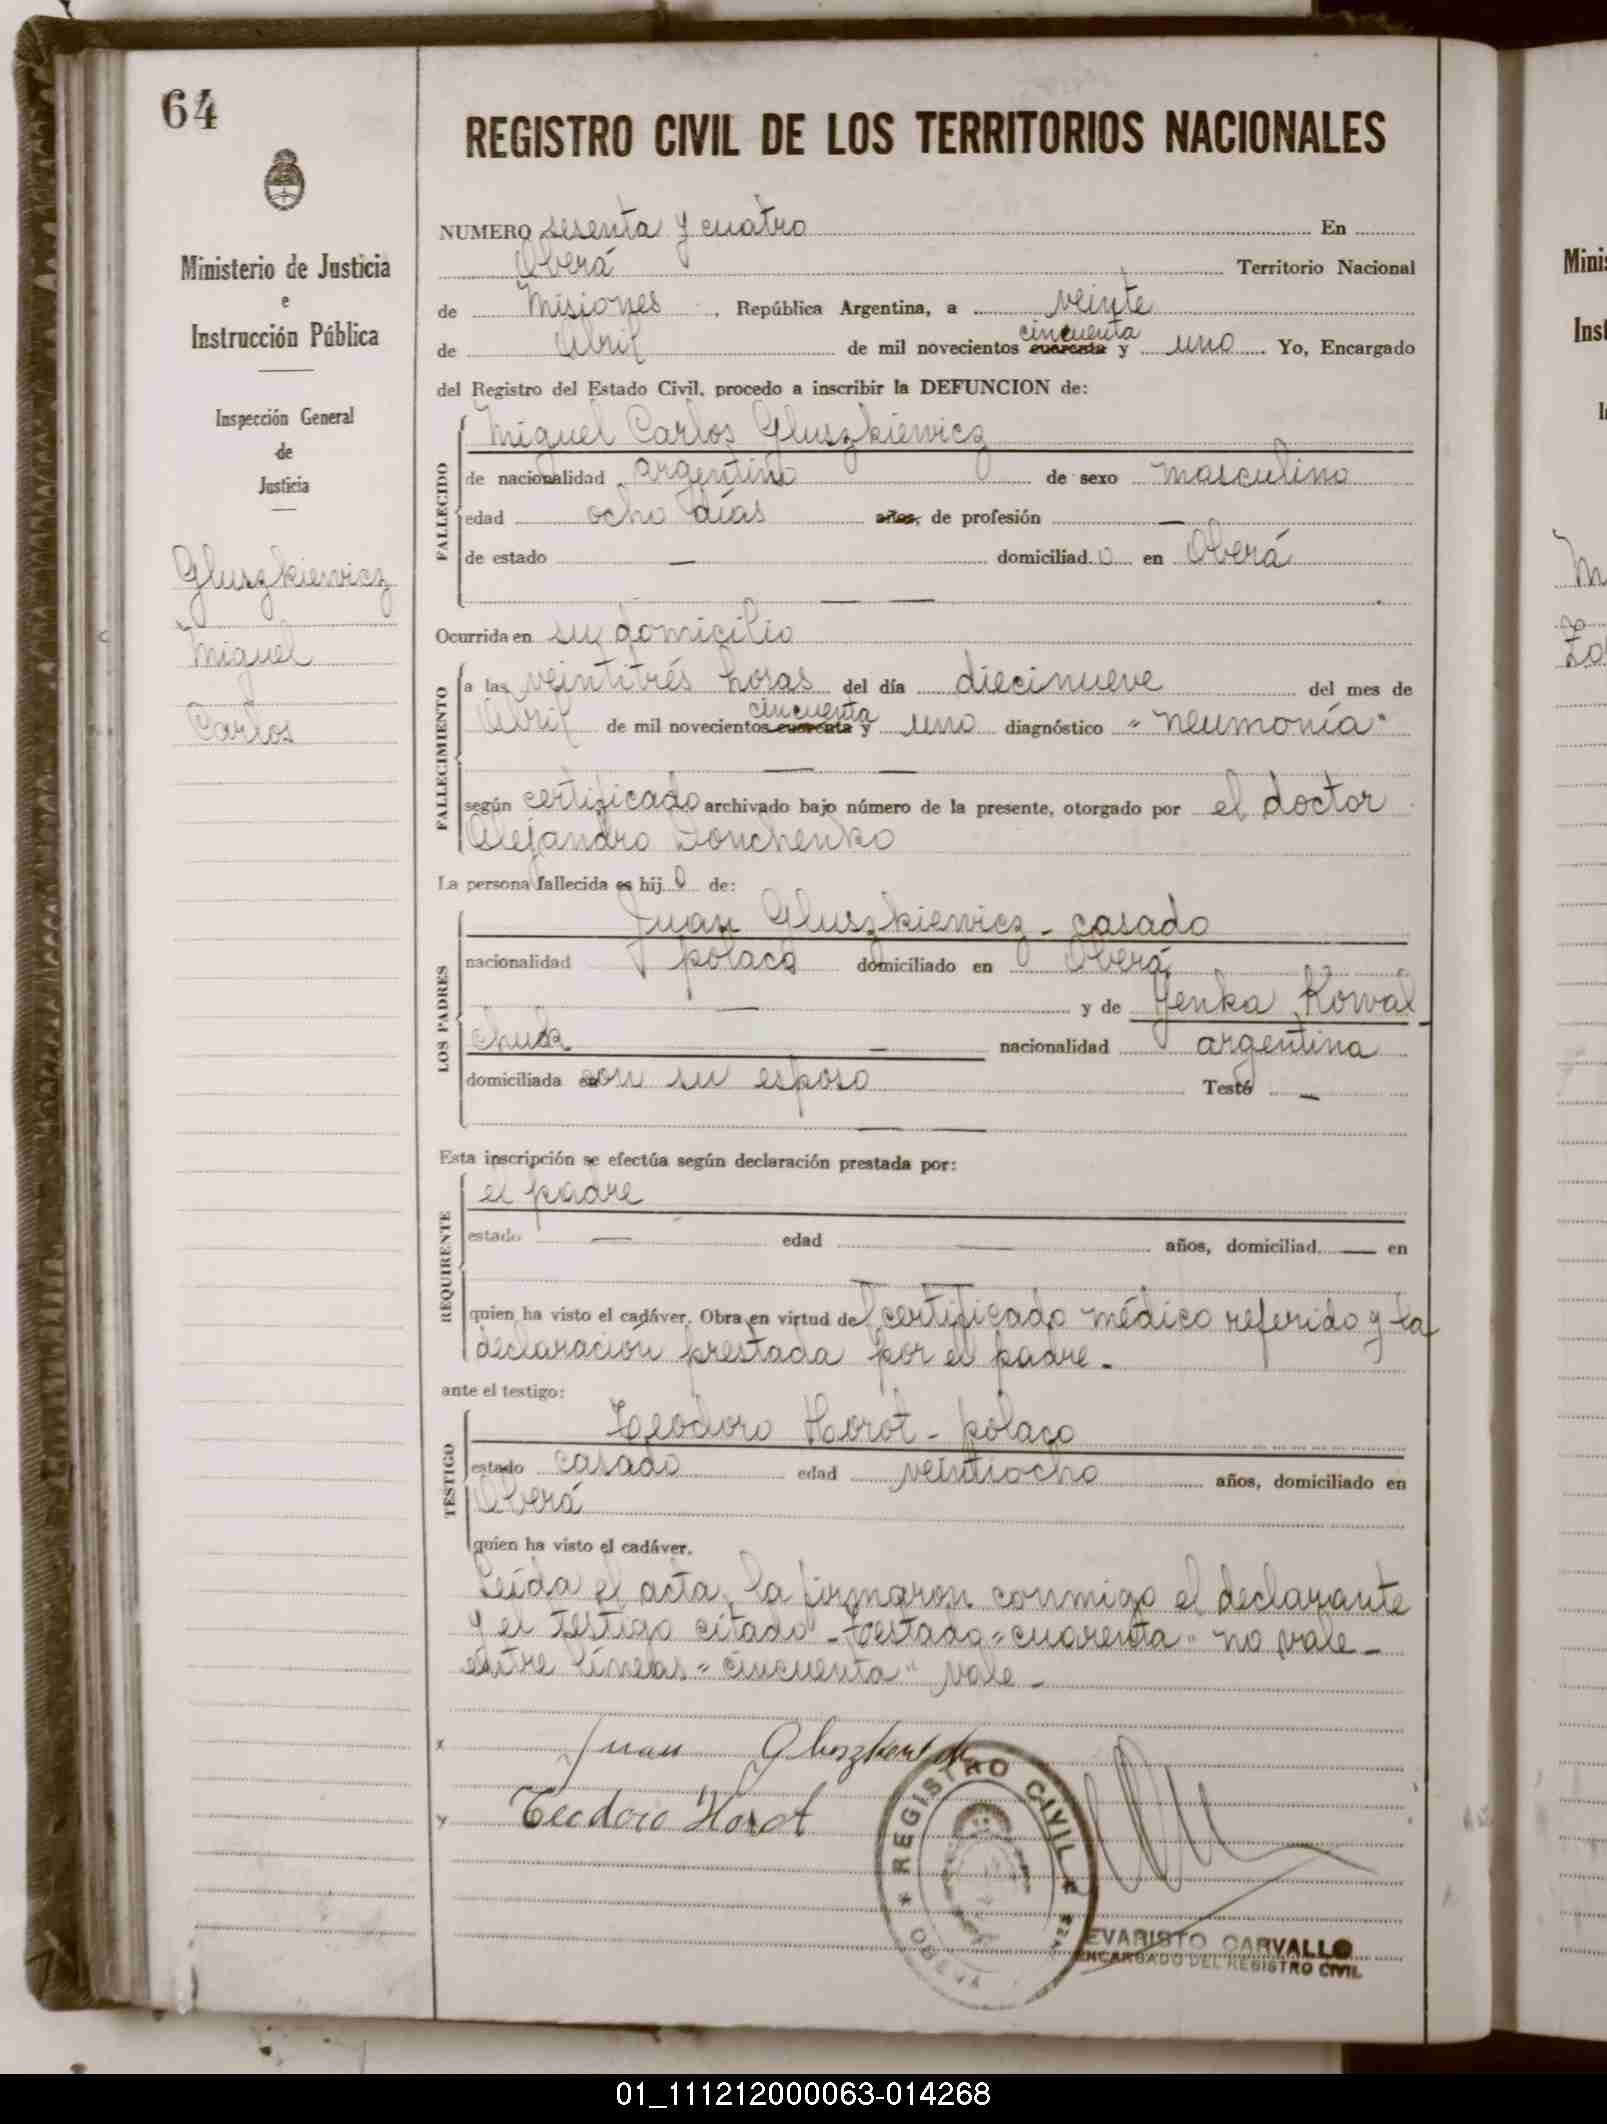 64
REGISTRO CIVIL DE LOS TERRITORIOS NACIONALES
Ministerio de Justicia
e
Instrucción Pública
Inspección General
de
Justicia
Gluszkiewicz
Miguel
Carlos
NUMERO sesenta y cuatro En
Oberá Territorio Nacional
de Misiones, República Argentina, a veinte
cincuenta
de Abril de mil novecientos cuarenta y uno Yo, Encargado
del Registro del Estado Civil, procedo a inscribir la DEFUNCION de:
FALLECIDO
Miguel Carlos Gluszkiewicz
de nacionalidad argentino de sexo masculino
edad ocho días años, de profesión —
de estado — domiciliad o en Oberá
— —
Ocurrida en su domicilio
FALLECIMIENTO
a las veintitrés horas del día diecinueve del mes de
cincuenta
Abril de mil novecientos cuarenta y uno diagnóstico "neumonía"
— —
según certificado archivado bajo número de la presente, otorgado por el doctor
Alejandro Donchenko
La persona fallecida es hij o de:
LOS PADRES
Juan Gluszkiewicz - casado
nacionalidad polaca domiciliado en Oberá
— y de Yenka Kowal
chuk — nacionalidad argentina
domiciliada en con su esposo Testó —
— —
Esta inscripción se efectúa según declaración prestada por:
REQUIRENTE
el padre
estado — edad — años, domiciliad — en
— —
quien ha visto el cadáver. Obra en virtud del certificado médico referido y la
declaración prestada por el padre.
ante el testigo:
TESTIGO
Teodoro Horot - polaco
estado casado edad veintiocho años, domiciliado en
Oberá
quien ha visto el cadáver.
Leída el acta, la firmaron conmigo el declarante
y el testigo citado - testado "cuarenta" no vale -
entre líneas "cincuenta" vale -
x Juan
x Teodoro Horot
REGISTRO CIVIL
OBERA
EVARISTO CARVALLO
ENCARGADO DEL REGISTRO CIVIL
Minis
Inst
01_111212000063-014268